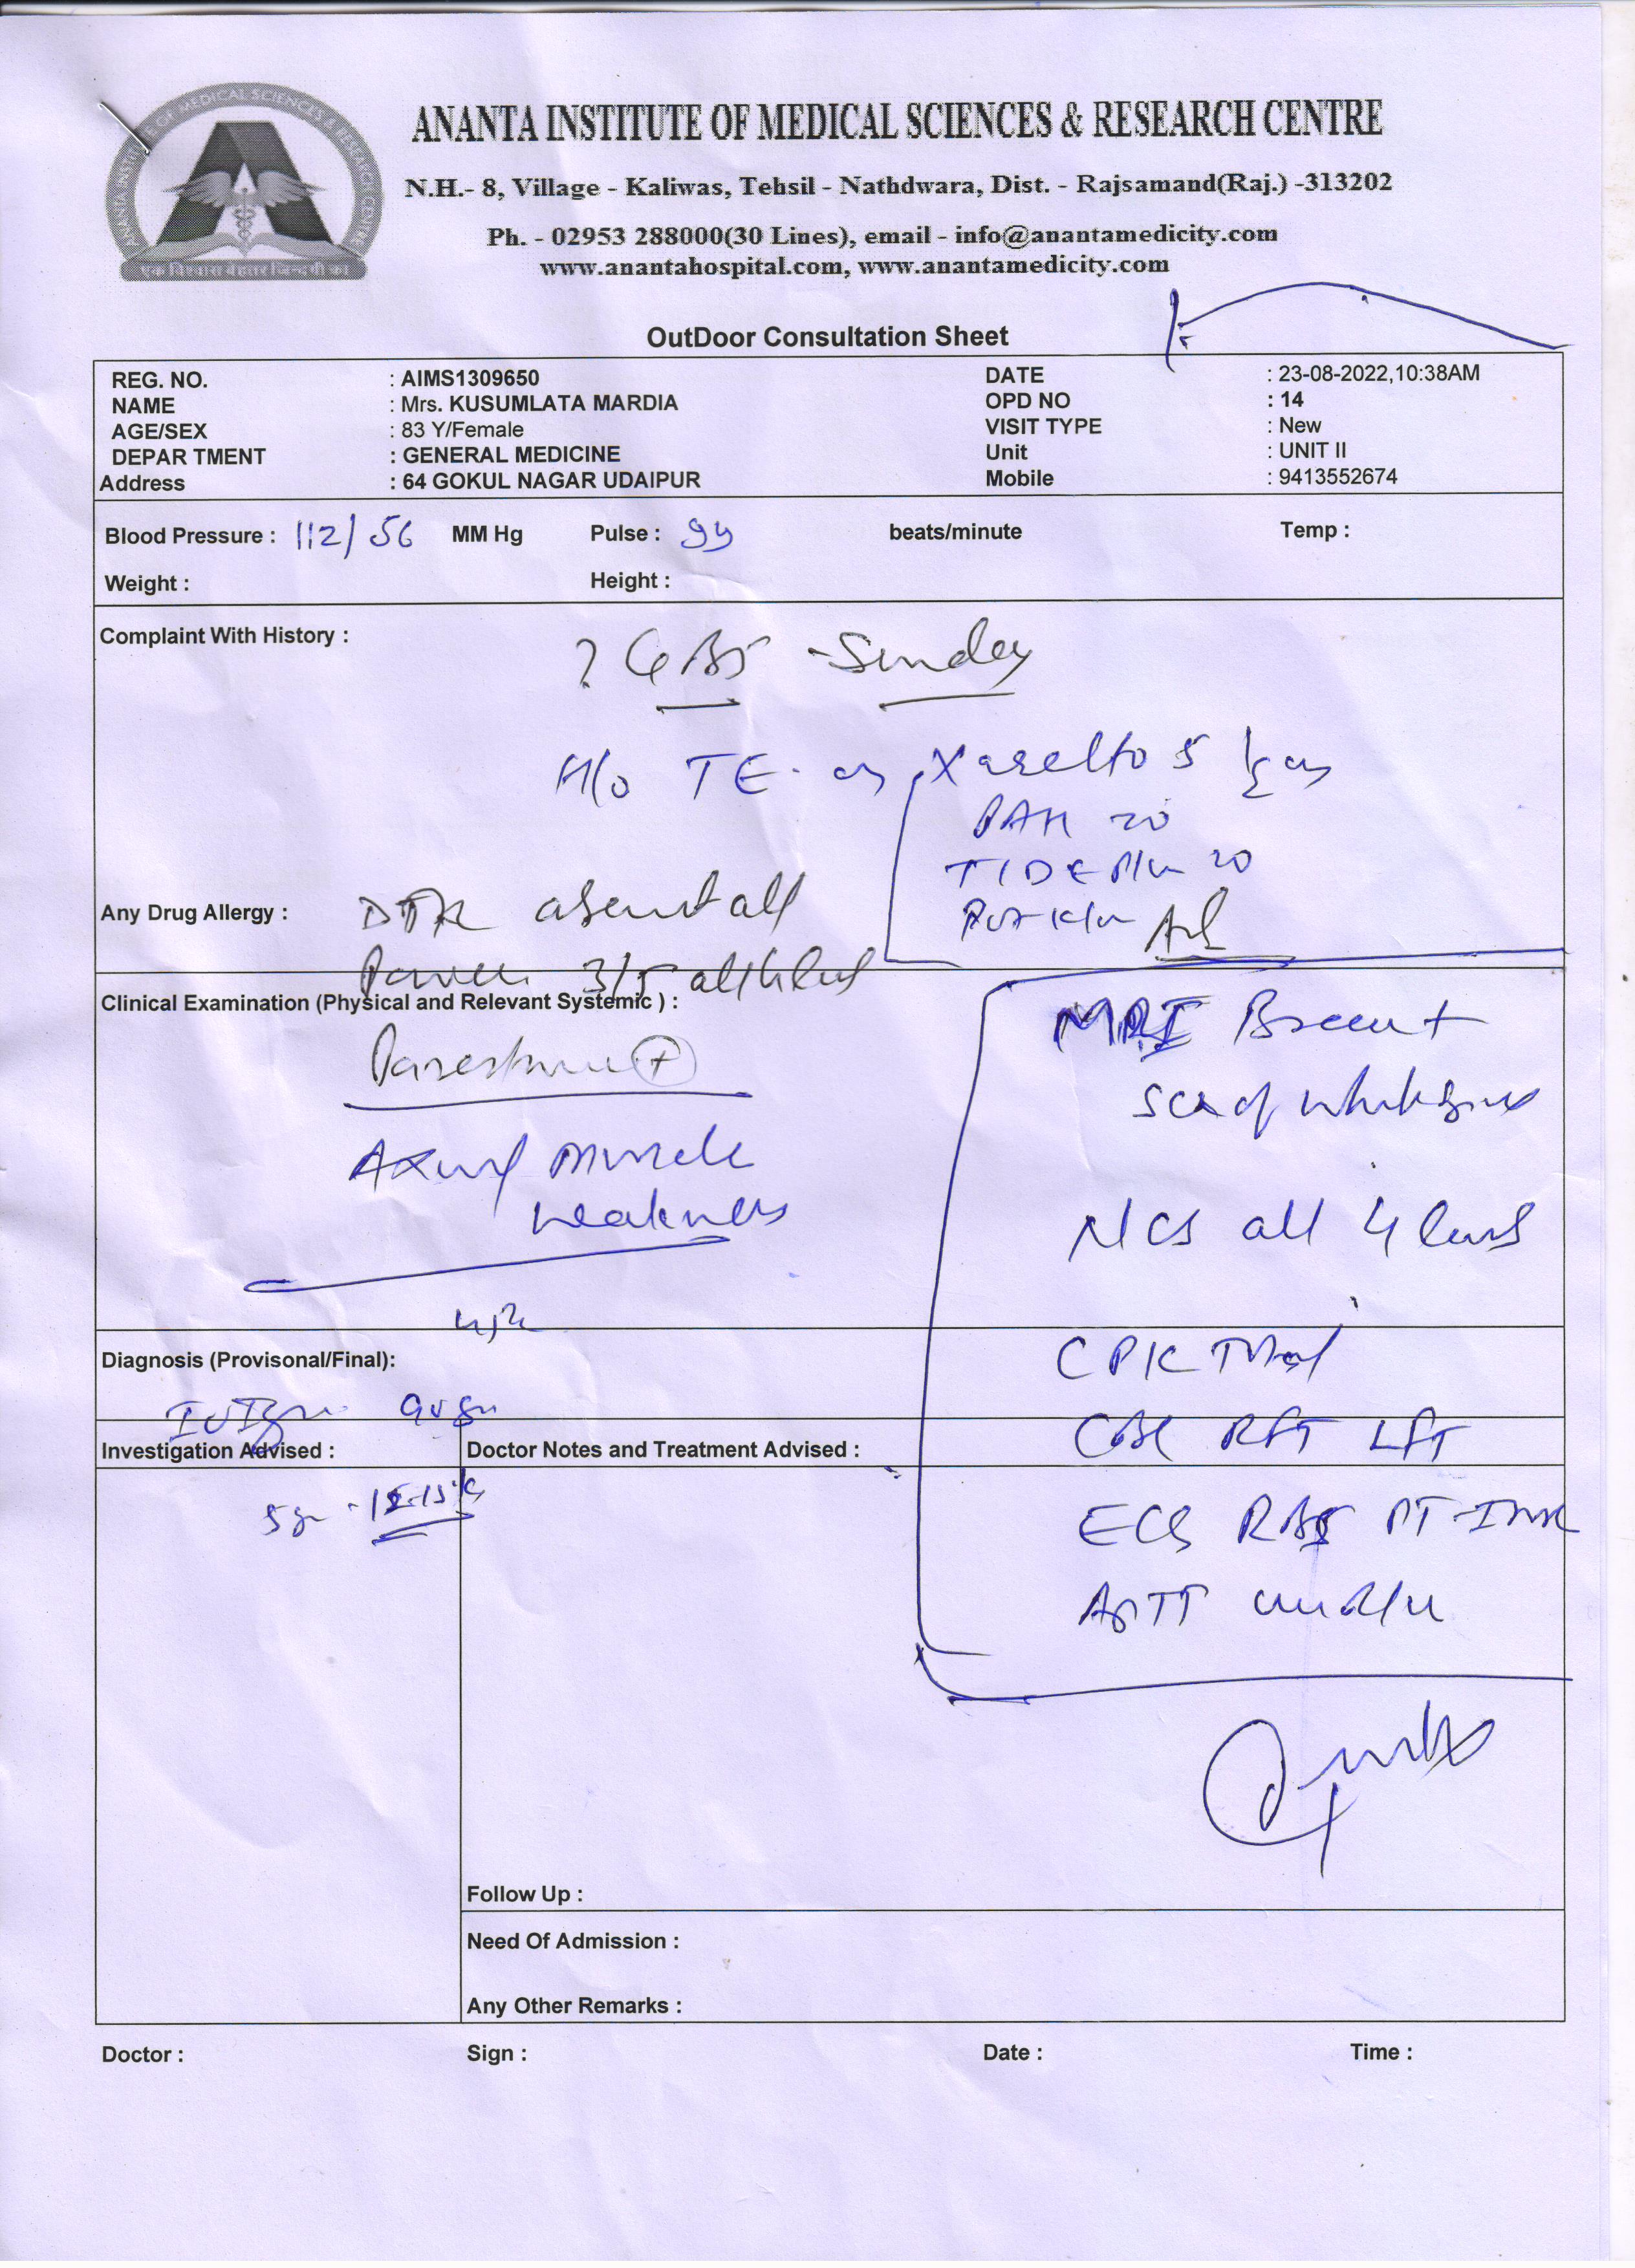 ANANTA INSTITUTE OF MEDICAL SCIENCES & RESEARCH CENTRE
एक विश्वास बेहतर जिन्दगी का
ANANTA INSTITUTE OF MEDICAL SCIENCES & RESEARCH CENTRE
N.H.- 8, Village - Kaliwas, Tehsil - Nathdwara, Dist. - Rajsamand(Raj.) -313202
Ph. - 02953 288000(30 Lines), email - info@anantamedicity.com
www.anantahospital.com, www.anantamedicity.com
OutDoor Consultation Sheet
REG. NO. : AIMS1309650 DATE : 23-08-2022,10:38AM
NAME : Mrs. KUSUMLATA MARDIA OPD NO : 14
AGE/SEX : 83 Y/Female VISIT TYPE : New
DEPAR TMENT : GENERAL MEDICINE Unit : UNIT II
Address : 64 GOKUL NAGAR UDAIPUR Mobile : 9413552674
Blood Pressure : 112/56 MM Hg Pulse : 99 beats/minute Temp :
Weight : Height :
Complaint With History :
? GBS - Sunday
H/o TE on Xarelto 5
PAN 20
TIDE 20
Any Drug Allergy : DTR absent all
Power 3/5 all 4
Clinical Examination (Physical and Relevant Systemic ) :
MRI
Axial muscle
weakness
NCS all 4
Diagnosis (Provisonal/Final):
CPK Total
CBC RFT LFT
Investigation Advised : Doctor Notes and Treatment Advised :
5
ECG RBS PT-INR
APTT
Follow Up :
Need Of Admission :
Any Other Remarks :
Doctor : Sign : Date : Time :